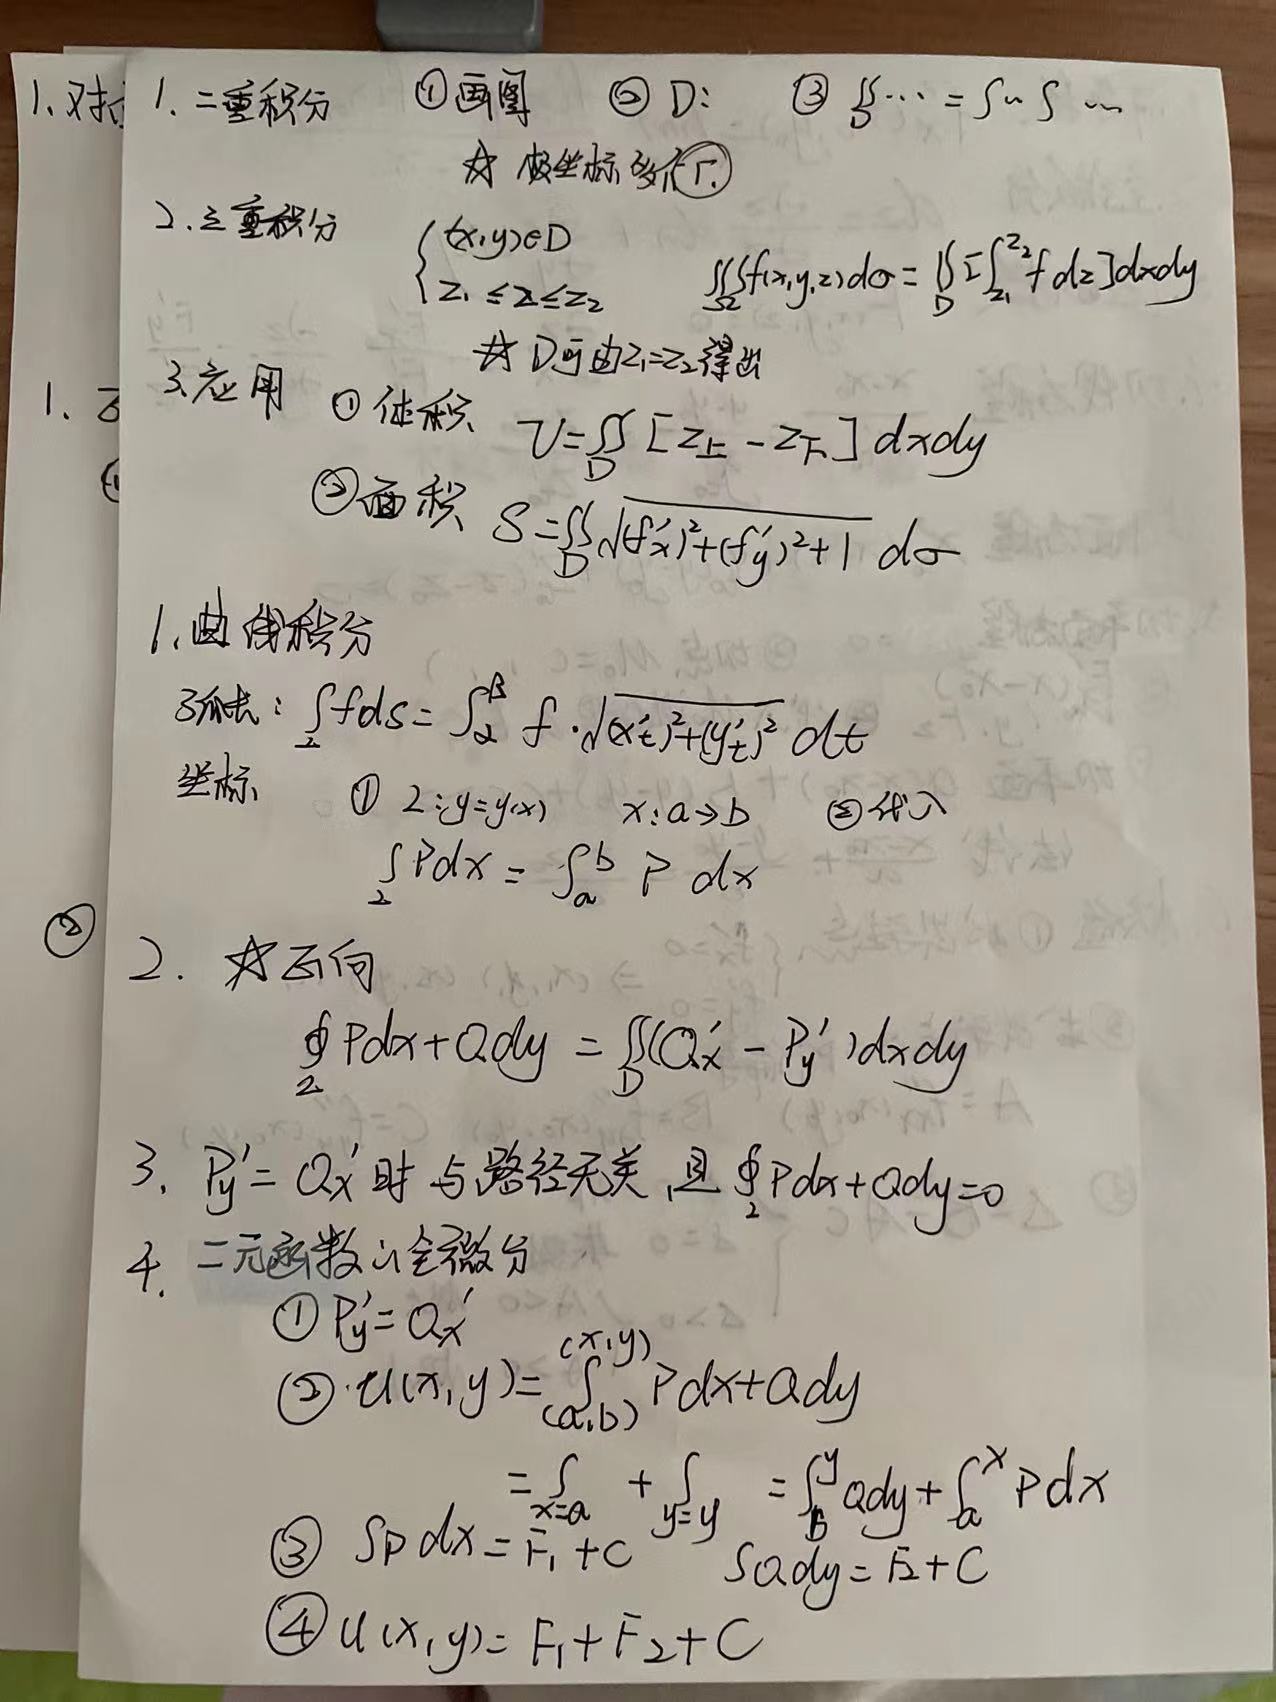 1. 二重积分 ① 画图 ② D: ③ ∬_D … = ∫~∫ …
☆ 极坐标多个 r.
2. 三重积分 { (x,y)∈D
z₁ ≤ z ≤ z₂ ∭_Ω f(x,y,z)dσ = ∬_D [∫_{z₁}^{z₂} f dz] dxdy
☆ D可由z₁=z₂得出
3. 应用 ① 体积 V = ∬_D [z上 - z下] dxdy
② 面积 S = ∬_D √((f'x)² + (f'y)² + 1) dσ
1. 曲线积分
弧长: ∫_L fds = ∫_α^β f·√((x't)² + (y't)²) dt
坐标 ① L: y=y(x) x: a→b ② 代入
∫_L Pdx = ∫_a^b P dx
2. ☆正向
∮_L Pdx+Qdy = ∬_D (Q'x - P'y) dxdy
3. P'y = Q'x 时 与路径无关, 且 ∮_L Pdx+Qdy=0
4. 二元函数 全微分
① P'y = Q'x
② u(x,y) = ∫_{(a,b)}^{(x,y)} Pdx+Qdy
= ∫_{x=a} + ∫_{y=y} = ∫_B^y Qdy + ∫_a^x Pdx
③ ∫P dx = F₁+C ∫Qdy = F₂+C
④ u(x,y) = F₁+F₂+C
1.对
1.
②